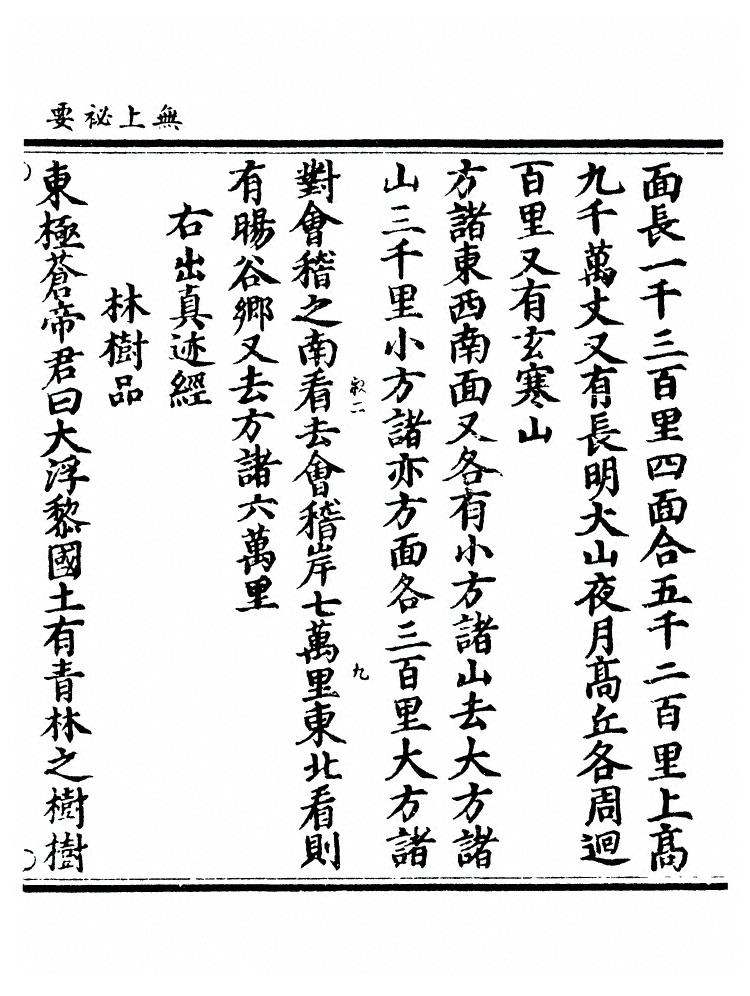 無上祕要
面長一千三百里四面合五千二百里上高
九千萬丈又有長明大山夜月高丘各周迴
百里又有玄寒山
方諸東西南面又各有小方諸山去大方諸
山三千里小方諸亦方面各三百里大方諸
二
九
對會稽之南看去會稽岸七萬里東北看則
有暘谷鄉又去方諸六萬里
右出真迹經
林樹品
東極蒼帝君曰大浮黎國土有青林之樹樹